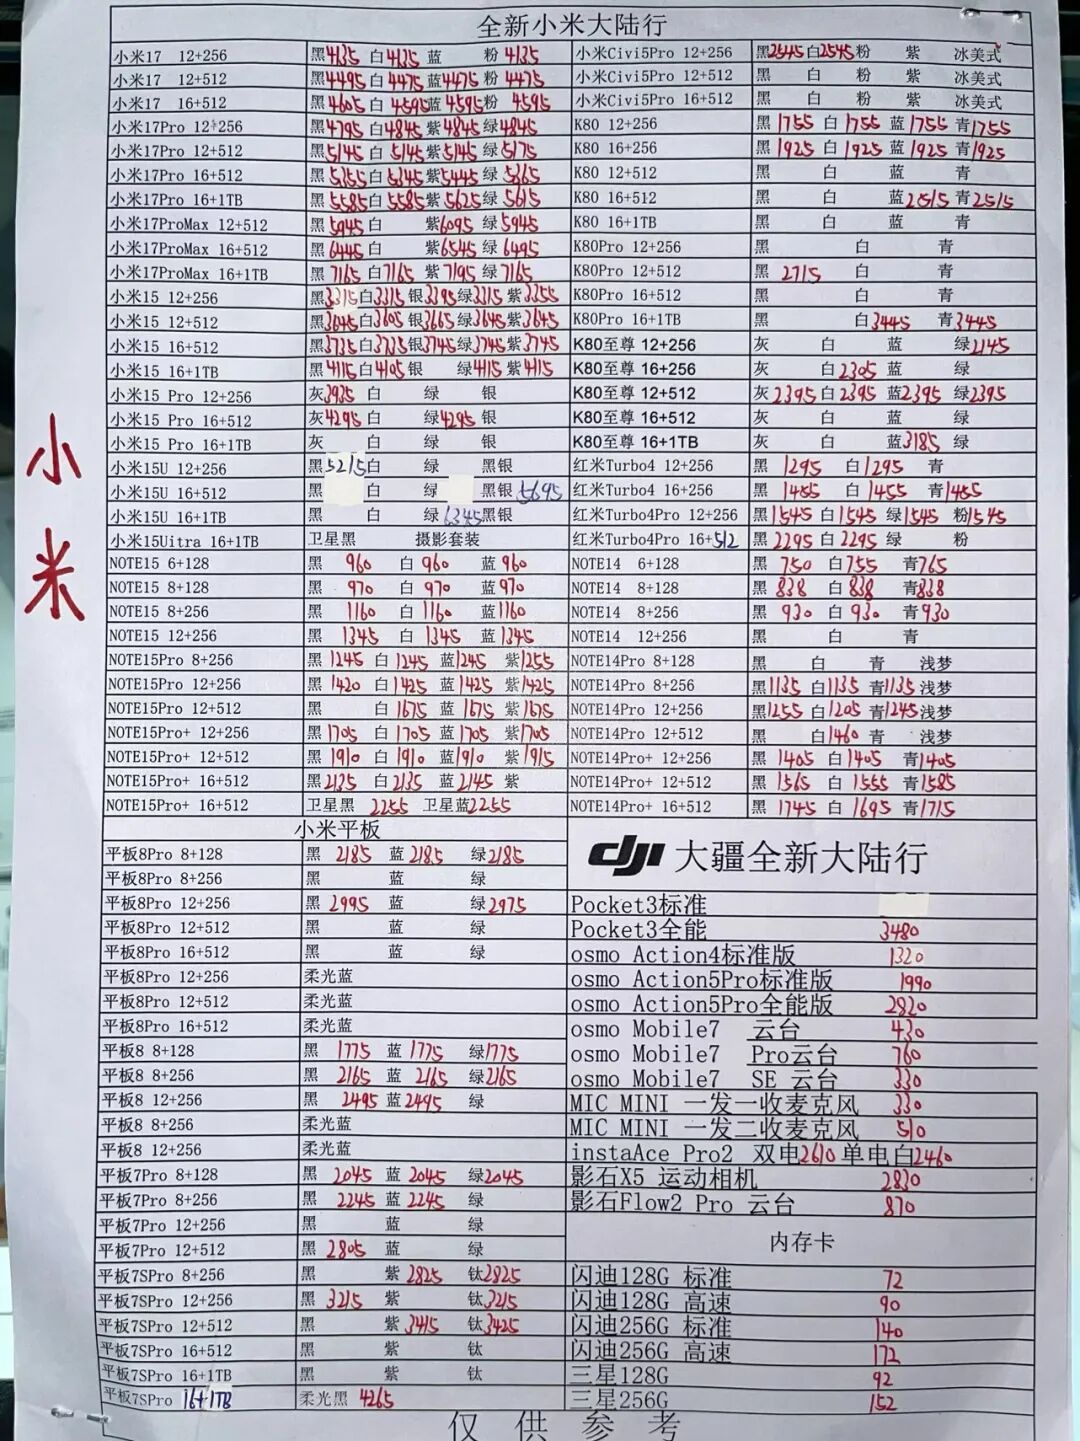 全新小米大陆行
小米
小米17 12+256 黑4135 白4135 蓝 粉4135
小米17 12+512 黑4495 白4475 蓝4475 粉4475
小米17 16+512 黑4605 白4595 蓝4595 粉4595
小米17Pro 12+256 黑4795 白4845 紫4845 绿4845
小米17Pro 12+512 黑5145 白5145 紫5145 绿5175
小米17Pro 16+512 黑 白5345 紫5445 绿
小米17Pro 16+1TB 黑5585 白5585 紫5625 绿5615
小米17ProMax 12+512 黑5945 白 紫6095 绿5945
小米17ProMax 16+512 黑6445 白 紫6545 绿6495
小米17ProMax 16+1TB 黑7165 白7165 紫7195 绿7165
小米15 12+256 黑3315 白3315 银3395 绿3315 紫3355
小米15 12+512 黑3645 白3605 银3665 绿3645 紫3645
小米15 16+512 黑3735 白3735 银3745 绿3745 紫3745
小米15 16+1TB 黑4115 白4105 银 绿4115 紫4115
小米15 Pro 12+256 灰3935 白 绿 银
小米15 Pro 16+512 灰4295 白 绿4295 银
小米15 Pro 16+1TB 灰 白 绿 银
小米15U 12+256 黑5215 白 绿 黑银
小米15U 16+512 黑 白 绿 黑银5695
小米15U 16+1TB 黑 白 绿6345 黑银
小米15Uitra 16+1TB 卫星黑 摄影套装
NOTE15 6+128 黑 960 白 960 蓝 960
NOTE15 8+128 黑 970 白 970 蓝970
NOTE15 8+256 黑 1160 白 1160 蓝1160
NOTE15 12+256 黑 1345 白 1345 蓝1345
NOTE15Pro 8+256 黑 1245 白 1245 蓝1245 紫1255
NOTE15Pro 12+256 黑 1420 白 1425 蓝1425 紫1425
NOTE15Pro 12+512 黑 白 1675 蓝 1675 紫1675
NOTE15Pro+ 12+256 黑1705 白 1705 蓝 1705 紫1705
NOTE15Pro+ 12+512 黑 1910 白 1910 蓝1910 紫1915
NOTE15Pro+ 16+512 黑2135 白2135 蓝2145 紫
NOTE15Pro+ 16+512 卫星黑 2255 卫星蓝2255
小米Civi5Pro 12+256 黑2545 白2545 粉 紫 冰美式
小米Civi5Pro 12+512 黑 白 粉 紫 冰美式
小米Civi5Pro 16+512 黑 白 粉 紫 冰美式
K80 12+256 黑 1755 白 1755 蓝1755 青1755
K80 16+256 黑 1925 白 1925 蓝 1925 青1925
K80 12+512 黑 白 蓝 青
K80 16+512 黑 白 蓝2515 青2515
K80 16+1TB 黑 白 蓝 青
K80Pro 12+256 黑 白 青
K80Pro 12+512 黑 2715 白 青
K80Pro 16+512 黑 白 青
K80Pro 16+1TB 黑 白3445 青3445
K80至尊 12+256 灰 白 蓝 绿2145
K80至尊 16+256 灰 白2305 蓝 绿
K80至尊 12+512 灰 2395 白 2395 蓝2395 绿2395
K80至尊 16+512 灰 白 蓝 绿
K80至尊 16+1TB 灰 白 蓝3185 绿
红米Turbo4 12+256 黑 1295 白1295 青
红米Turbo4 16+256 黑 1455 白 1455 青1455
红米Turbo4Pro 12+256 黑1545 白1545 绿1545 粉1545
红米Turbo4Pro 16+512 黑2295 白2295 绿 粉
NOTE14 6+128 黑 750 白755 青765
NOTE14 8+128 黑 838 白 838 青838
NOTE14 8+256 黑 930 白 930 青930
NOTE14 12+256 黑 白 青
NOTE14Pro 8+128 黑 白 青 浅梦
NOTE14Pro 8+256 黑1135 白1135 青1135 浅梦
NOTE14Pro 12+256 黑1255 白1205 青1245 浅梦
NOTE14Pro 12+512 黑 白1460 青 浅梦
NOTE14Pro+ 12+256 黑 1405 白1405 青1405
NOTE14Pro+ 12+512 黑 1565 白 1555 青1585
NOTE14Pro+ 16+512 黑 1745 白 1695 青1715
小米平板
平板8Pro 8+128 黑 2185 蓝2185 绿2185
平板8Pro 8+256 黑 蓝 绿
平板8Pro 12+256 黑 2995 蓝 绿2975
平板8Pro 12+512 黑 蓝 绿
平板8Pro 16+512 黑 蓝 绿
平板8Pro 12+256 柔光蓝
平板8Pro 12+512 柔光蓝
平板8Pro 16+512 柔光蓝
平板8 8+128 黑 1775 蓝 1775 绿1775
平板8 8+256 黑 2165 蓝 2165 绿2165
平板8 12+256 黑 2495 蓝2495 绿
平板8 8+256 柔光蓝
平板8 12+256 柔光蓝
平板7Pro 8+128 黑 2045 蓝 2045 绿2045
平板7Pro 8+256 黑 2245 蓝2245 绿
平板7Pro 12+256 黑 蓝 绿
平板7Pro 12+512 黑 2805 蓝 绿
平板7SPro 8+256 黑 紫 2825 钛2825
平板7SPro 12+256 黑 3215 紫 钛3215
平板7SPro 12+512 黑 紫3415 钛3425
平板7SPro 16+512 黑 紫 钛
平板7SPro 16+1TB 黑 紫 钛
平板7SPro 16+1TB 柔光黑 4265
dji 大疆全新大陆行
Pocket3标准
Pocket3全能 3480
osmo Action4标准版 1320
osmo Action5Pro标准版 1990
osmo Action5Pro全能版 2820
osmo Mobile7 云台 430
osmo Mobile7 Pro云台 760
osmo Mobile7 SE 云台 330
MIC MINI 一发一收麦克风 330
MIC MINI 一发二收麦克风 510
instaAce Pro2 双电2610 单电白2460
影石X5 运动相机 2820
影石Flow2 Pro 云台 870
内存卡
闪迪128G 标准 72
闪迪128G 高速 90
闪迪256G 标准 140
闪迪256G 高速 172
三星128G 92
三星256G 152
仅供参考